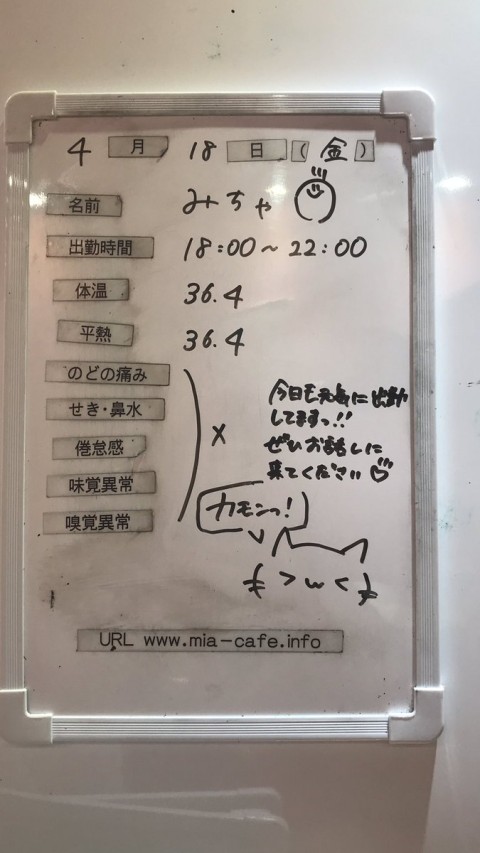 4月18日(金)
名前 みちゃ
出勤時間 18:00~22:00
体温 36.4
平熱 36.4
のどの痛み
せき・鼻水
倦怠感
味覚異常
嗅覚異常
×
今日も元気に出勤
してますっ!!
ぜひお話しに
来てください♡
カモンっ!
>w<
URL www.mia-cafe.info